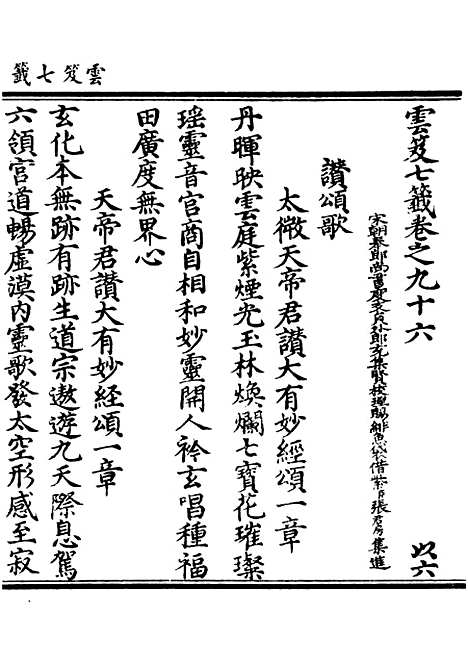 雲笈七籤
雲笈七籤卷之九十六 以六
宋朝奉郎尚書度支員外郎充集賢校理賜緋魚袋借紫臣張君房集進
讚頌歌
太微天帝君讚大有妙經頌一章
丹暉映雲庭紫煙光玉林煥爛七寶花璀璨
瑶靈音宮商自相和妙靈開人衿玄唱種福
田廣度無界心
天帝君讚大有妙經頌一章
玄化本無跡有跡生道宗遨遊九天際息駕
六領宫道暢虛漠內靈歌發太空形感至寂